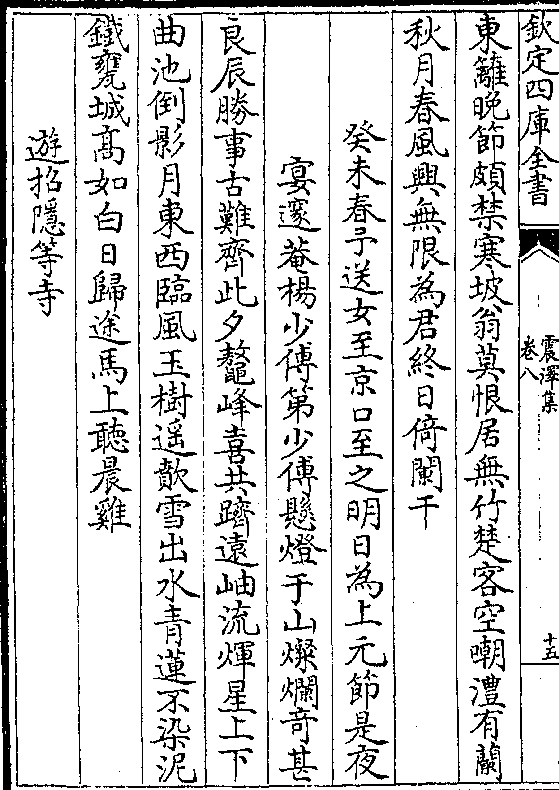 欽定四庫全書
震澤集
卷八
十五
東籬晚節頗禁寒坡翁莫恨居無竹楚客空嘲澧有蘭
秋月春風興無限為君終日倚闌干
癸未春予送女至京口至之明日為上元節是夜
宴邃菴楊少傅第少傅懸燈于山燦爛奇甚
良辰勝事古難齊此夕鼇峰喜共躋遠岫流煇星上下
曲池倒影月東西臨風玉樹遥歕雪出水青蓮不染泥
鐵甕城髙如白日歸途馬上聽晨雞
遊招隱等寺